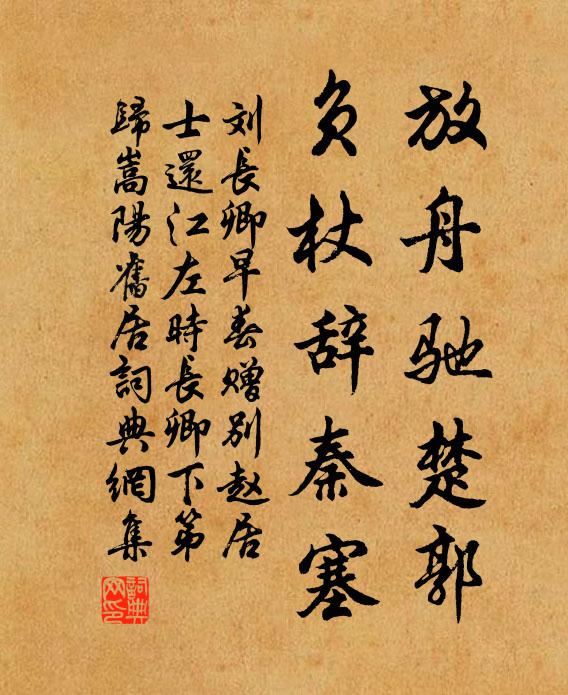 放舟驰楚郭
负杖辞秦塞
刘長卿早春赠别赵居
士還江左時長卿下第
歸嵩陽舊居詞典網集
詞典網印